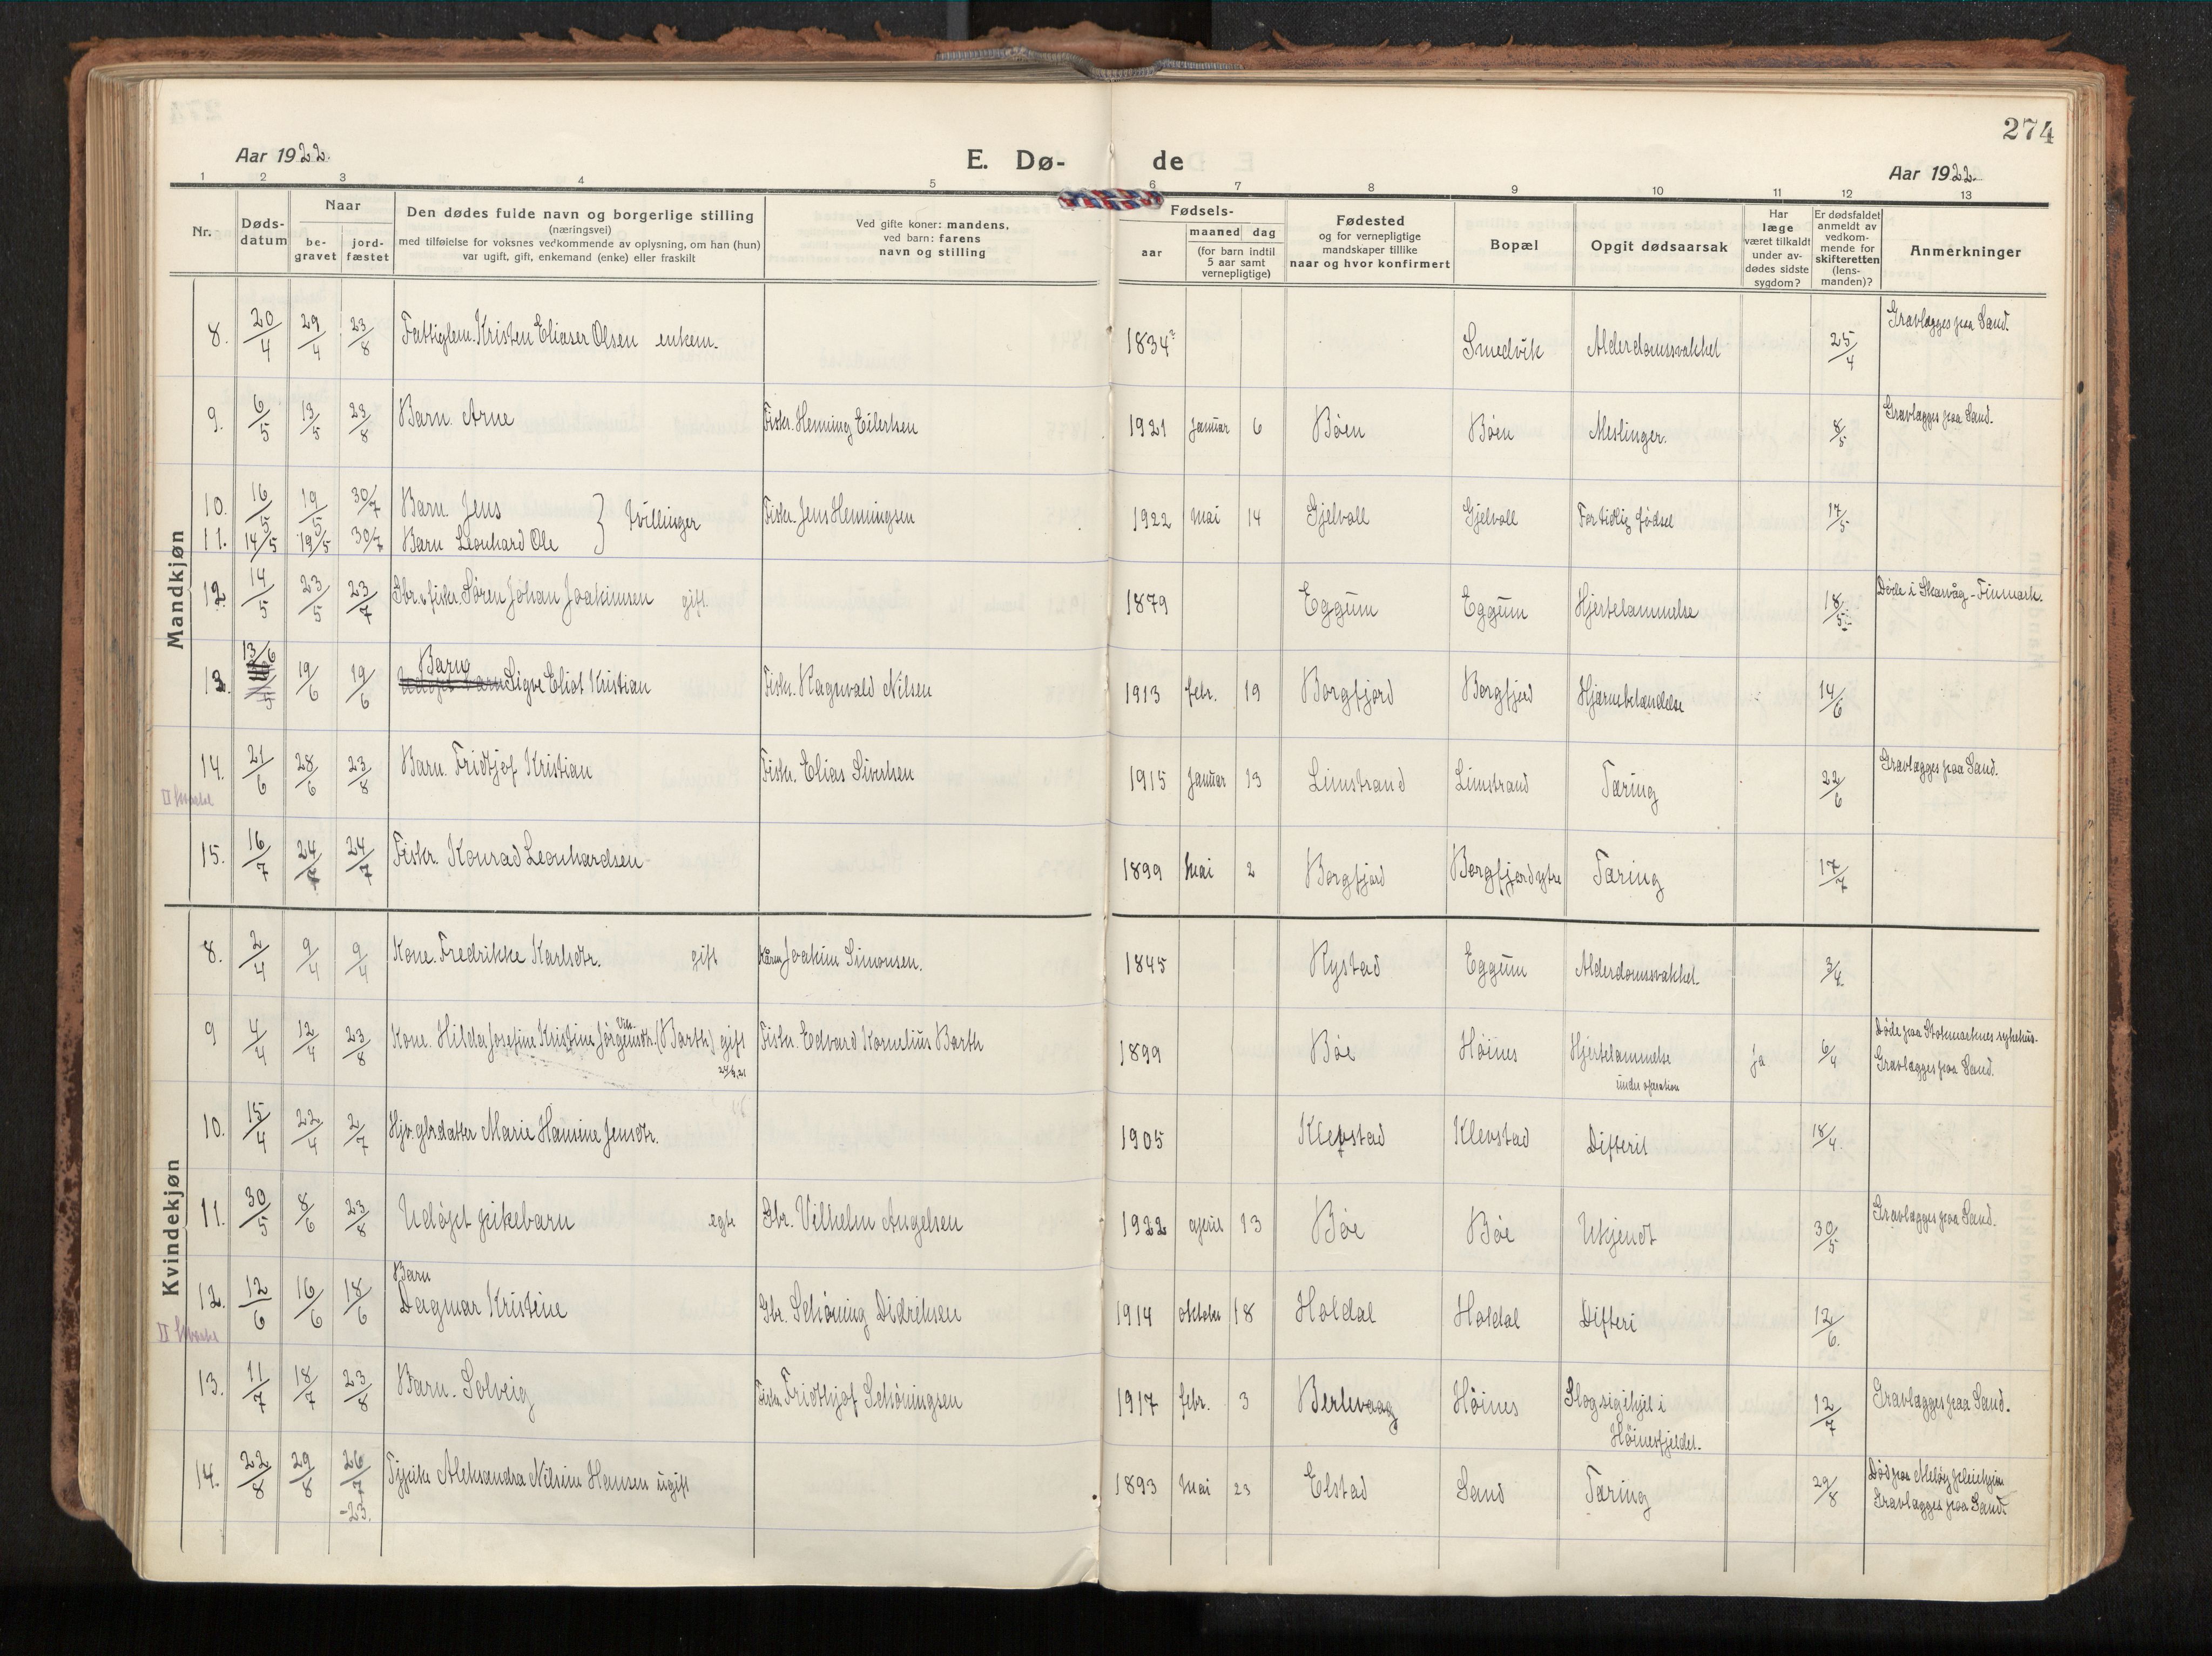 274
Aar 1922.
E. Dø-
de
Aar 1922.
1 2 3 4 5 6 7 8 9 10 11 12 13
Nr.
Døds-
datum
Naar
be-
gravet
jord-
fæstet
Den dødes fulde navn og borgerlige stilling
(næringsvei)
med tilføielse for voksnes vedkommende av oplysning, om han (hun)
var ugift, gift, enkemand (enke) eller fraskilt
Ved gifte koner: mandens,
ved barn: farens
navn og stilling
Fødsels-
aar
maaned dag
(for barn indtil
5 aar samt
vernepligtige)
Fødested
og for vernepligtige
mandskaper tillike
naar og hvor konfirmert
Bopæl
Opgit dødsaarsak
Har
læge
været tilkaldt
under av-
dødes sidste
sygdom?
Er dødsfaldet
anmeldt av
vedkom-
mende for
skifteretten
(lens-
manden)?
Anmerkninger
Mandkjøn
8. 20/4 29/4 23/8 Fattiglem. Kristen Eliaser Olsen enkem. 1834? Smedvik Alderdomssvakhet 25/4 Gravlægges paa Sand.
9. 6/5 13/5 23/8 Barn. Arne Fiskr. Henning Eilertsen 1921 januar 6 Böen Böen Meslinger. 8/5 Gravlægges paa Sand.
10. 16/5 19/5 30/7 Barn. Jens } Tvillinger Fiskr. Jens Henningsen 1922 mai 14 Gjelvoll Gjelvoll For tidlig födsel 17/5
11. 14/5 19/5 30/7 Barn Leonhard Ole
12. 14/5 23/5 23/7 Gbr. & fiskr. Sören Johan Joakimsen gift 1879 Eggum Eggum Hjertelammelse 18/5 Döde i Skarvåg - Finmark.
13. 13/6 19/6 19/6 Barn Sigve Eliot Kristian Fiskr. Ragnvald Nilsen 1913 febr. 19 Borgfjord Borgfjord Hjernebetændelse 14/6
14. 21/6 28/6 23/8 Barn. Fridtjof Kristian Fiskr. Elias Sivertsen 1915 januar 13 Limstrand Limstrand Tæring 22/6 Gravlægges paa Sand.
15. 16/7 24/7 24/7 Fiskr. Konrad Leonhardsen 1899 mai 2 Borgfjord Borgfjord ytre Tæring 17/7
Kvindekjøn
8. 2/4 9/4 9/4 Kone. Fredrikke Karlsdtr. gift Joakim Simonsen. 1845 Rystad Eggum Alderdomssvakhet. 3/4
9 4/4 12/4 23/8 Kone. Hilda Josefine Kristine Jörgensdtr. (Barth) gift Fiskr. Edvard Kornelius Barth 1899 Böe Höines Hjertelammelse ja 6/4 Döde paa Stokmarknes sykehus.
under operation Gravlægges paa Sand.
10. 15/4 22/4 2/7 Hjv. gbrdatter Marie Hansine Jensdtr. 1905 Klevstad Klevstad Difterit 18/4.
11. 30/5 8/6 23/8 Udöpt pikebarn egte Gbr. Vilhelm Angelsen 1922 april 13 Böe Böe Ukjendt 30/5 Gravlægges paa Sand.
Barn
12. 12/6 16/6 18/6 Dagmar Kristine Gbr. Schöning Didriksen 1914 oktober 18 Holdal Holdal Difteri 12/6.
13. 11/7 18/7 23/8 Barn. Solveig Fiskr. Fridthjof Schöningsen 1917 febr. 3 Berlevaag Höines Slog sig ihjel i 12/7 Gravlægges paa Sand.
Höinesfjeldet.
14. 22/8 29/8 26/7 -23. Tjpike Aleksandra Nilsine Hansen ugift 1893 mai 23 Elstad Sand Tæring 29/8 Död paa Melöy pleiehjem
Gravlægges paa Sand.